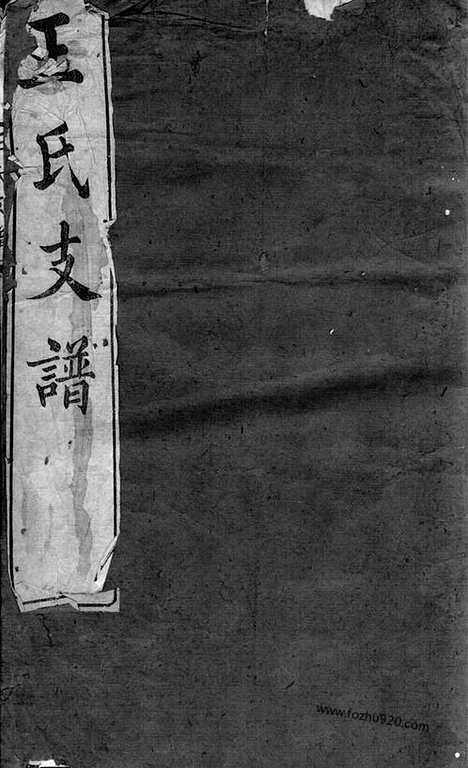 王氏支譜
www.fozhu920.com